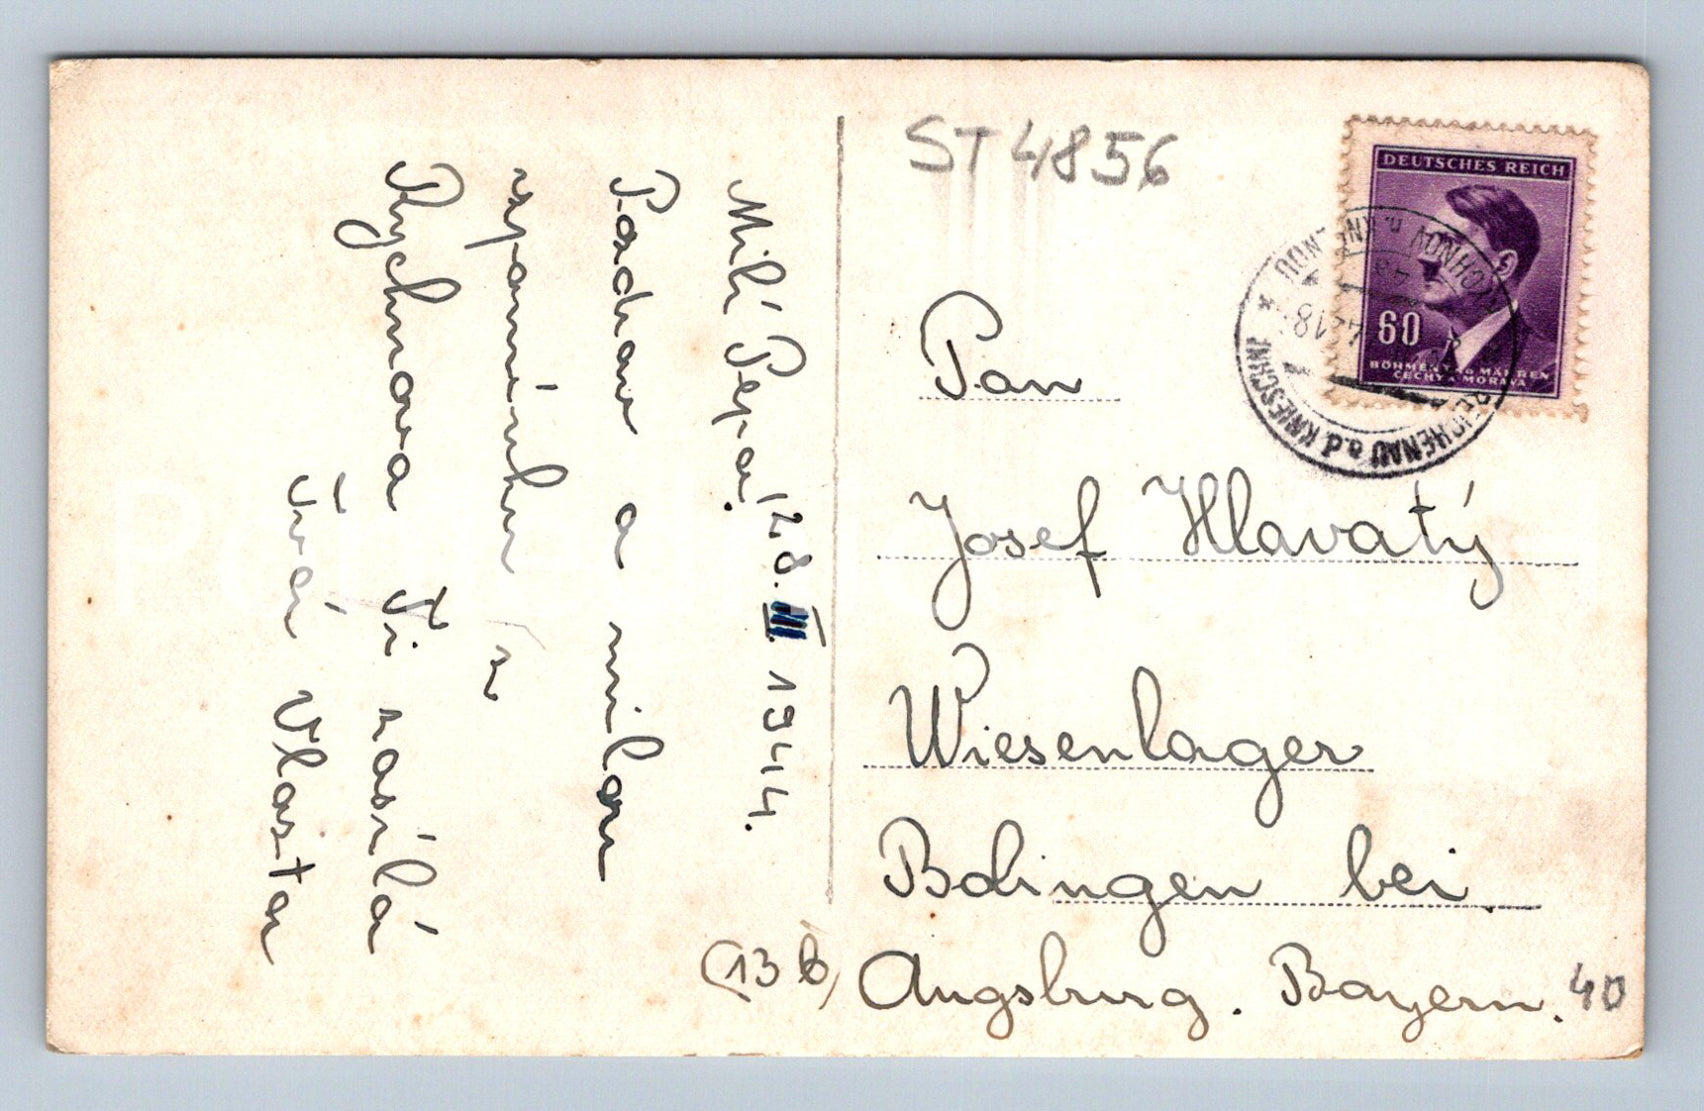 Milý Pepo! 28.III 1944.
Pozdrav a milou
vzpomínku z
Rychnova Ti zasílá
Tvá Vlasta
ST 4856
DEUTSCHES REICH
60
BÖHMEN U. MÄHREN
ČECHY A MORAVA
REICHENAU a.d. KNIESCHNA
Pan
Josef Hlavatý
Wiesenlager
Bobingen bei
(13 b) Augsburg. Bayern.
40